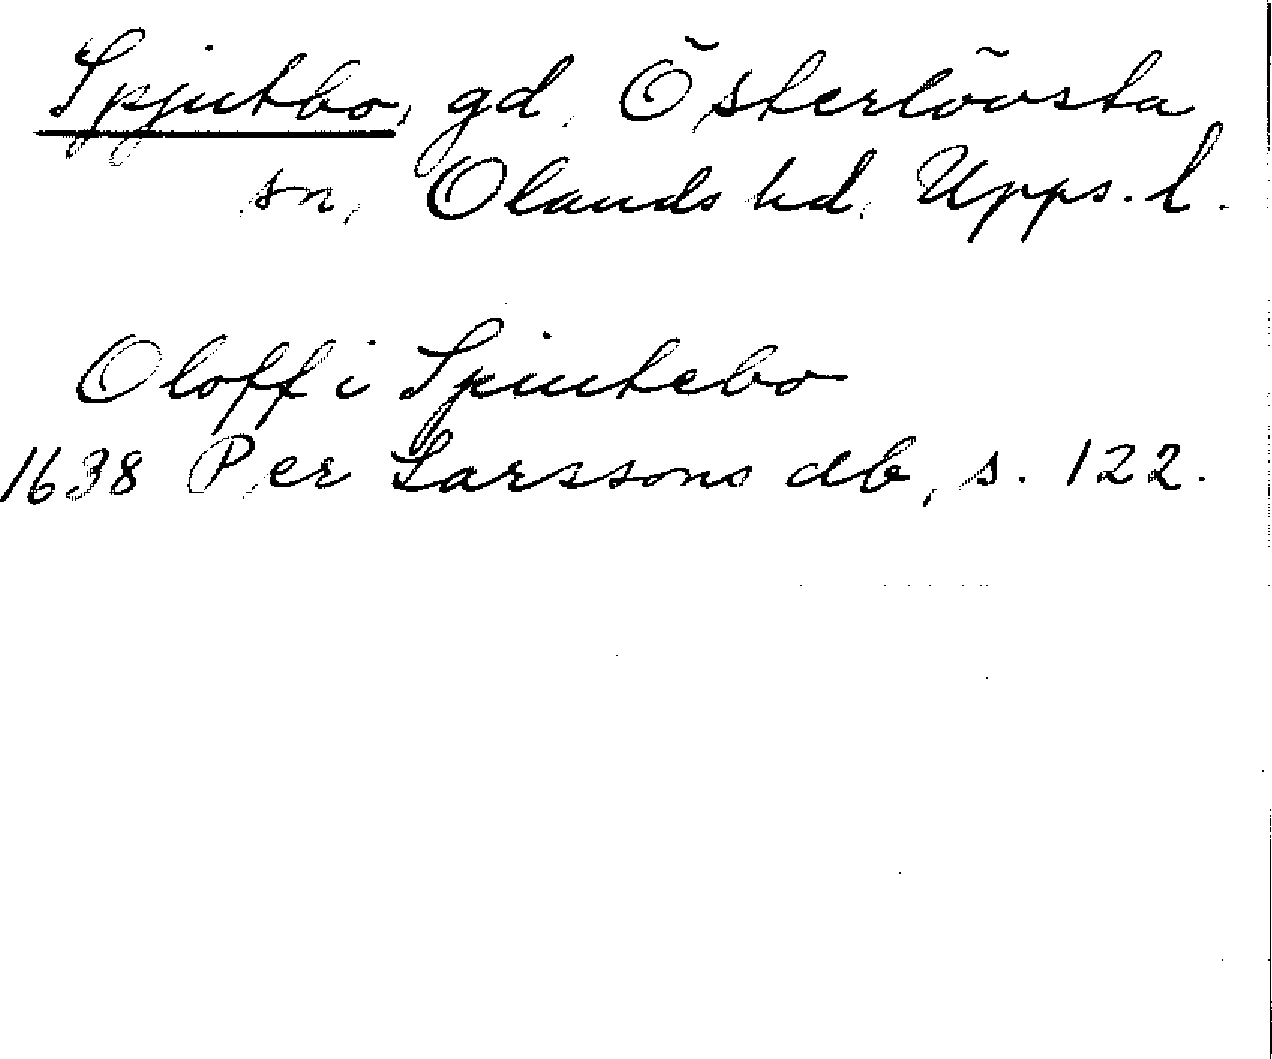 Spjutbo, gd, Österlövsta
sn, Olands hd, Upps. l.
Oloff i Spiutebo
1638 Per Larssons db, s. 122.